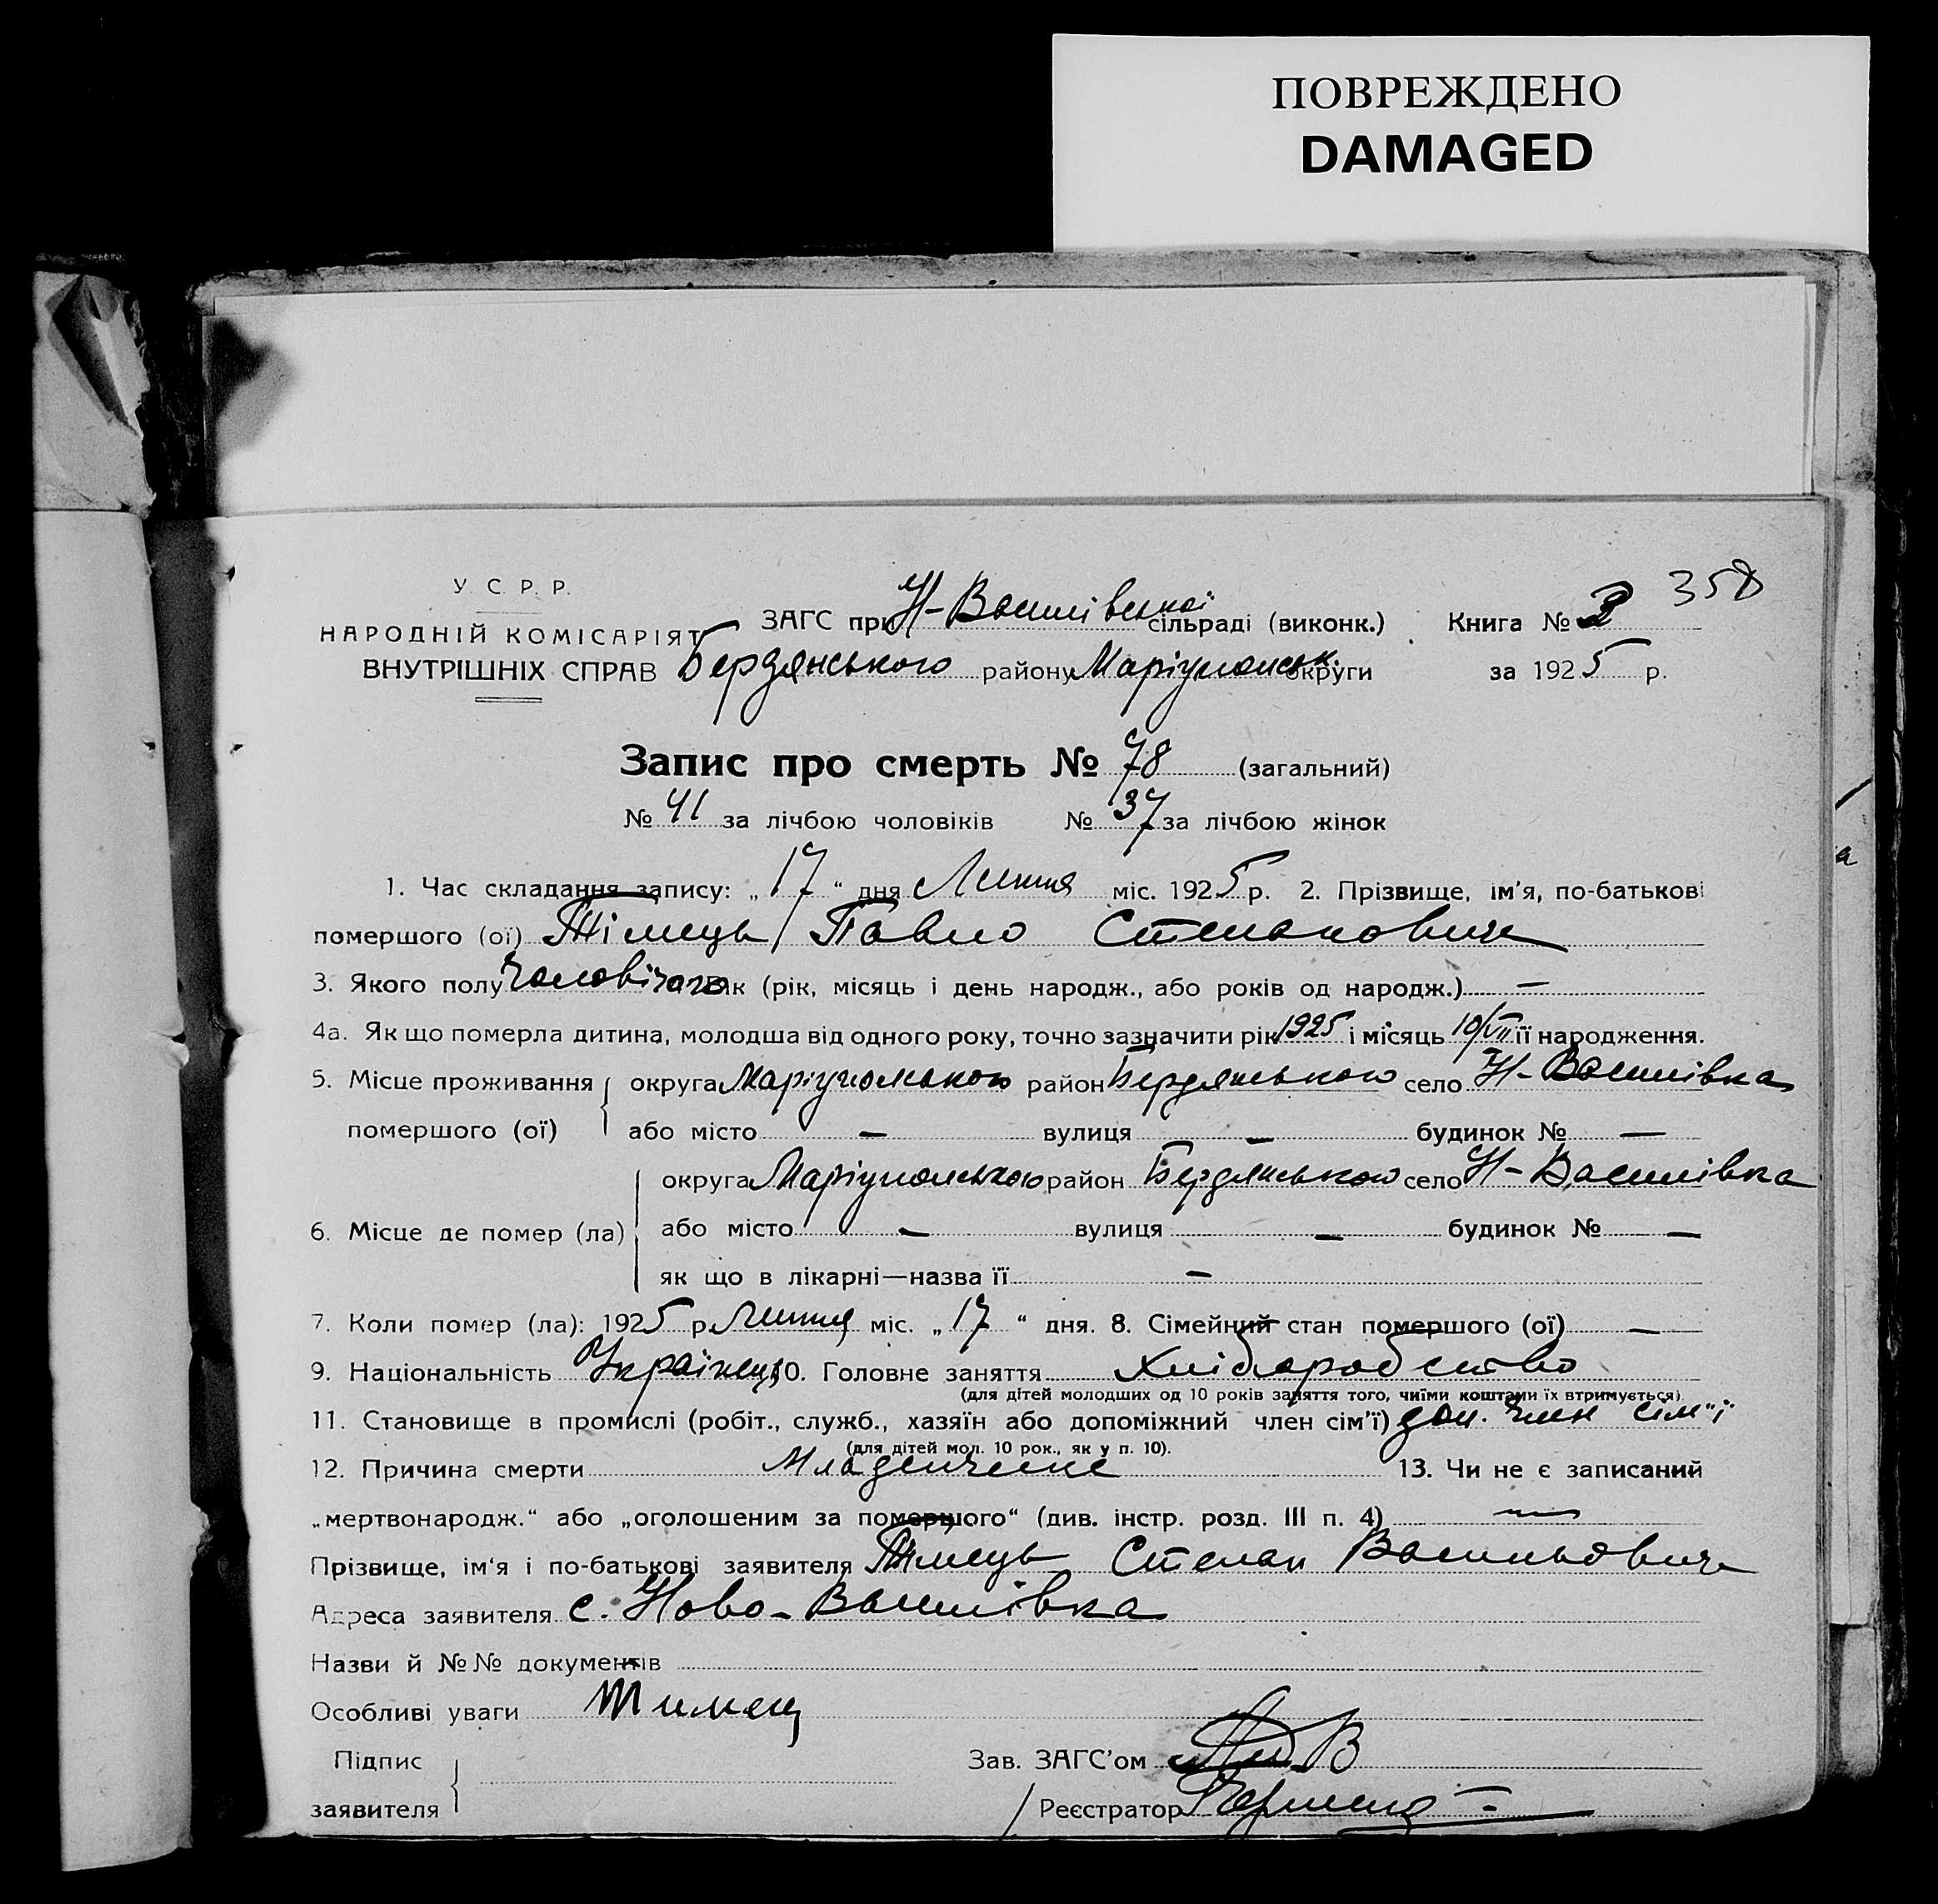 ПОВРЕЖДЕНО
DAMAGED
358
У. С. Р. Р.
НАРОДНІЙ КОМІСАРІЯТ
ВНУТРІШНІХ СПРАВ
ЗАГС при Н-Василівської сільраді (виконк.) Книга №
Бердянського району Маріупольськ. округи за 1925 р.
Запис про смерть № 78 (загальний)
№ 41 за лічбою чоловіків № 37 за лічбою жінок
1. Час складання запису: „17“ дня Липня міс. 1925 р. 2. Прізвище, ім'я, по-батькові
помершого (ої) Тімець Павло Степанович
3. Якого полу Чоловічого Вік (рік, місяць і день народж., або років од народж.) —
4а. Як що померла дитина, молодша від одного року, точно зазначити рік 1925 і місяць 10/VII її народження.
5. Місце проживання округа Маріупольською район Бердянського село Н-Василівка
помершого (ої) або місто — вулиця — будинок № —
округа Маріупольською район Бердянського село Н-Василівка
6. Місце де помер (ла) або місто — вулиця — будинок № —
як що в лікарні—назва її —
7. Коли помер (ла): 1925 р. Липня міс. „17“ дня. 8. Сімейний стан помершого (ої) —
9. Національність Українець 10. Головне заняття Хліборобство
(для дітей молодших од 10 років заняття того, чиїми коштами їх втримується)
11. Становище в промислі (робіт., служб., хазяїн або допоміжний член сім'ї) доп. член сім"ї
(для дітей мол. 10 рок., як у п. 10).
12. Причина смерти Младенческе 13. Чи не є записаний
„мертвонародж.“ або „оголошеним за помершого“ (див. інстр. розд. III п. 4) —
Прізвище, ім'я і по-батькові заявителя Тімець Степан Васильович
Адреса заявителя с. Ново-Василівка
Назви й №№ документів
Особливі уваги Тимец
Підпис
заявителя
Зав. ЗАГС'ом
Реєстратор